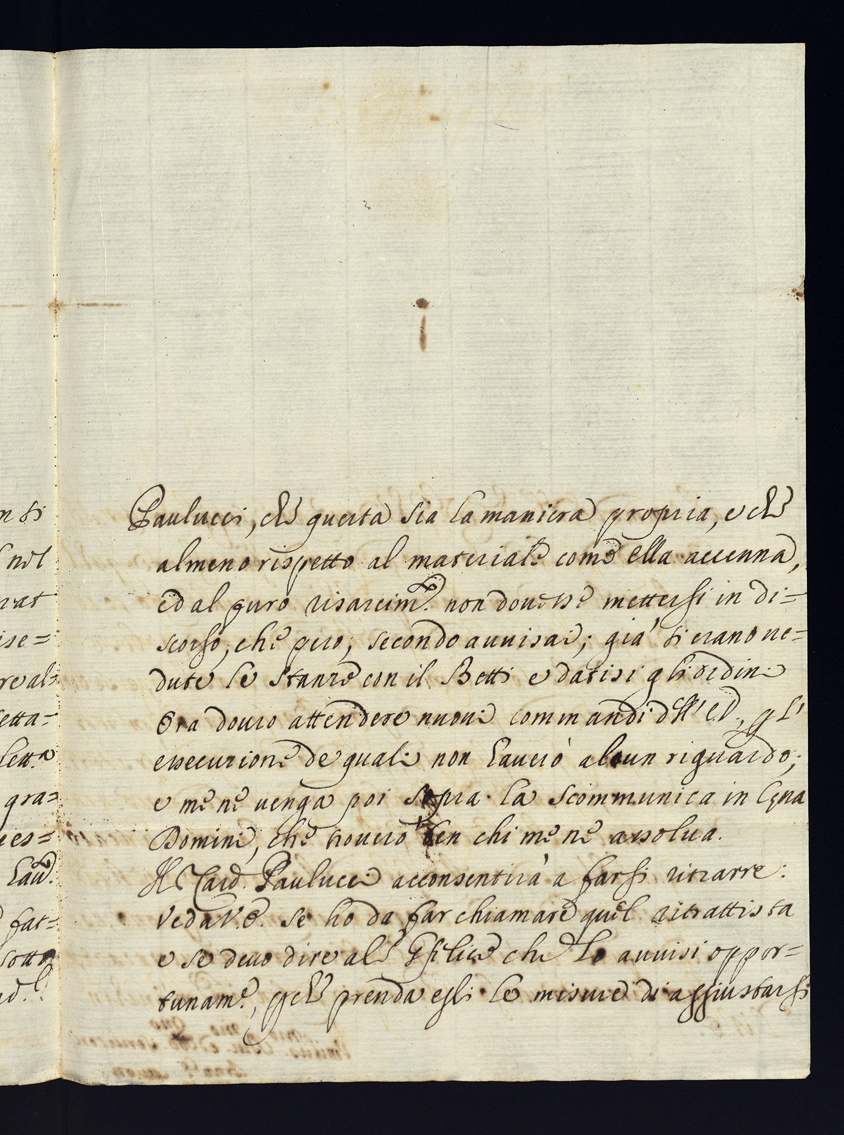 Paulucci, che questa sia la maniera propria, e che
almeno rispetto al materiale come Ella accenna,
ed al puro risarcim.to non dovesse mettersi in di=
scorso, che però, secondo avvisai, già si erano ve=
dute le stanze con il Betti e datisi gli ordini
Ora dovrò attendere nuovi commandi d V. E., p l'
esecuzione de quali non l'averò alcun riguardo;
e me ne venga poi sopra la scommunica in Cena
Domini, che troverò ben chi me ne assolva.
Il Card. Paulucci acconsentirà a farsi ritrarre:
veda V. E. se ho da far chiamare quel ritrattista
e se devo dire al che lo avvisi oppor=
tunam.e, p che prenda egli le misure di aggiustarsi
n si
l nel
vat
ise=
real=
etta=
lett.a
gra=
es=
Laud.
fat=
sotto